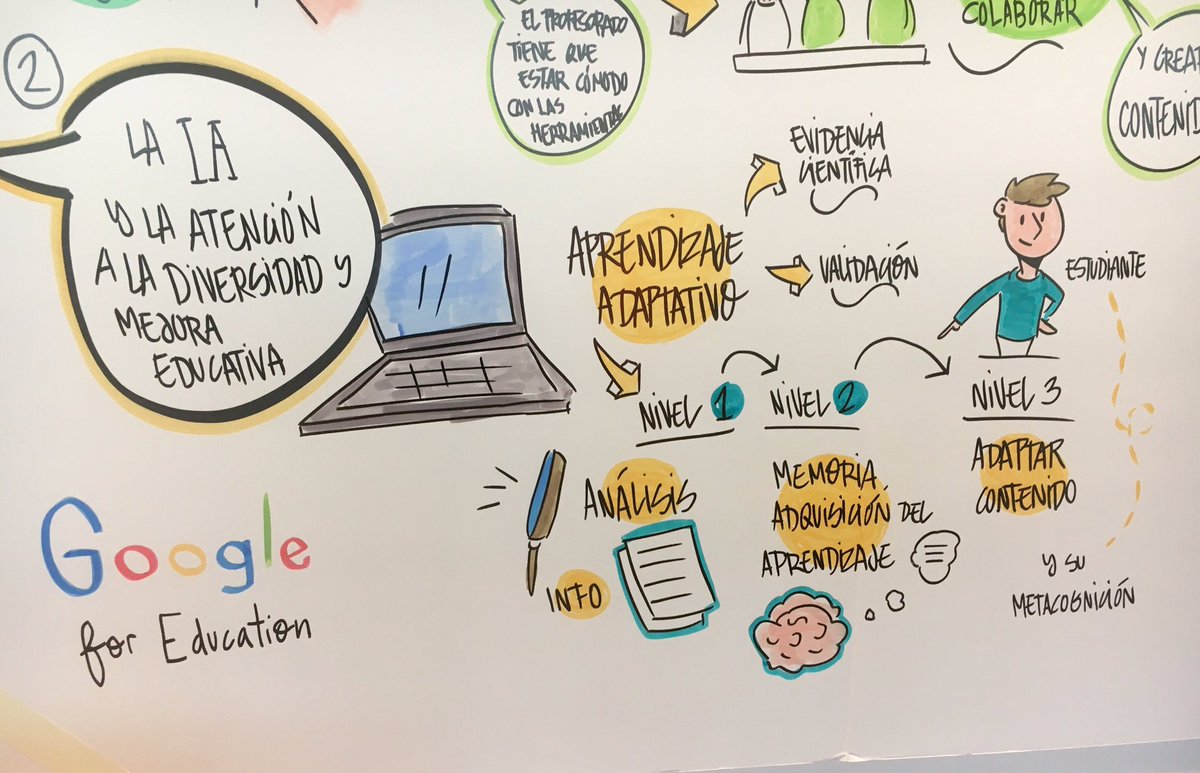 EL PROFESORADO
TIENE QUE
ESTAR CÓMODO
CON LAS
HERRAMIENTAS
COLABORAR
Y CREAR
CONTENID
2
LA IA
Y LA ATENCIÓN
A LA DIVERSIDAD Y
MEJORA
EDUCATIVA
APRENDIZAJE
ADAPTATIVO
EVIDENCIA
CIENTÍFICA
VALIDACIÓN
ESTUDIANTE
NIVEL 1
NIVEL 2
NIVEL 3
ANÁLISIS
INFO
MEMORIA,
ADQUISICIÓN DEL
APRENDIZAJE
ADAPTAR
CONTENIDO
Y SU
METACOGNICIÓN
Google
for Education